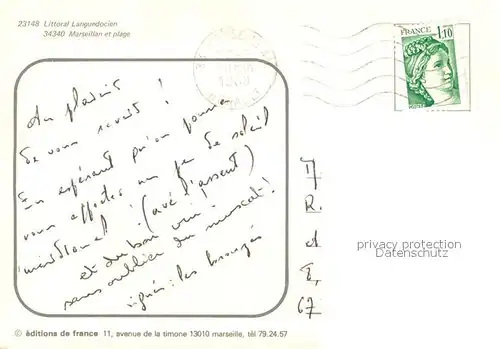 23148 Littoral Languedocien
34340 Marseillan et plage
FRANCE
1,10
Au plaisir
de vous revoir !
En espérant qu'on pourra
vous apporter un peu de soleil
méridional ! (avé l'assent)
et du bon vin !
sans oublier du muscat !
signé : les bronzés
R.
d
67
privacy protection
Datenschutz
© éditions de france 11, avenue de la timone 13010 marseille, tél 79.24.57